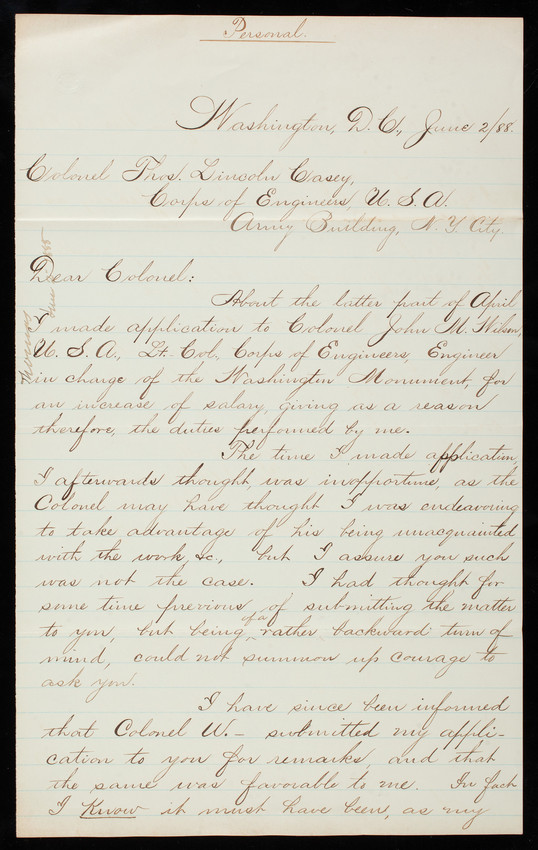 Personal.
Washington, D. C., June 2/88.
Colonel Thos. Lincoln Casey,
Corps of Engineers, U. S. A.
Army Building, N. Y. City.
Dear Colonel:
About the latter part of April
I made application to Colonel John M. Wilson,
U. S. A., Lt. Col., Corps of Engineers, Engineer
in charge of the Washington Monument, for
an increase of salary, giving as a reason
therefore, the duties performed by me.
The time I made application,
I afterwards thought, was inopportune, as the
Colonel may have thought I was endeavoring
to take advantage of his being unacquainted
with the work, &c., but I assure you such
was not the case. I had thought for
some time previous, of submitting the matter
to you, but being of a rather backward turn of
mind, could not summon up courage to
ask you.
I have since been informed
that Colonel W.– submitted my appli-
cation to you for remarks, and that
the same was favorable to me. In fact
I Know it must have been, as my